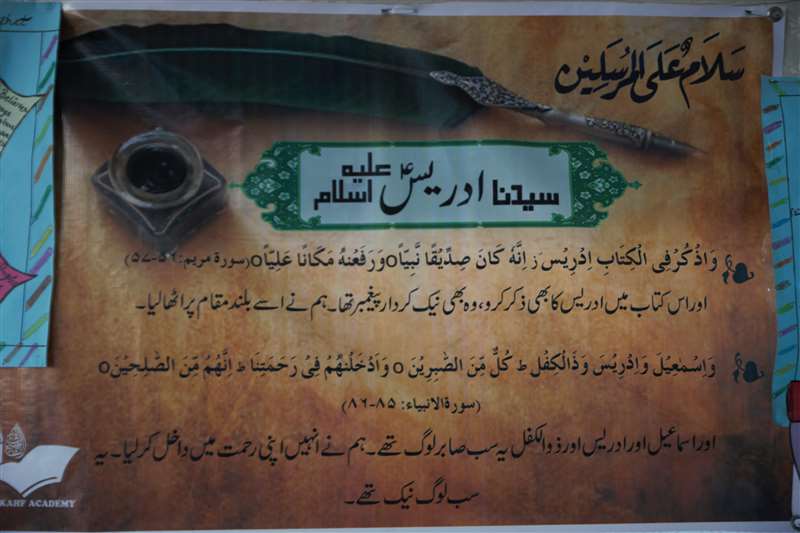 سَلَامٌ عَلَى الْمُرْسَلِيْن
سیدنا ادریسؑ علیہ اسلام
وَاذْكُرْ فِی الْكِتَابِ اِدْرِيْسَ ز اِنَّهٗ كَانَ صِدِّيْقًا نَّبِيًّا o وَّرَفَعْنٰهُ مَكَانًا عَلِيًّا o (سورۃ مریم: ۵۶-۵۷)
اور اس کتاب میں ادریس کا بھی ذکر کرو، وہ بھی نیک کردار پیغمبر تھا۔ ہم نے اسے بلند مقام پر اٹھا لیا۔
وَاِسْمٰعِيْلَ وَاِدْرِيْسَ وَذَالْكِفْلِ ط كُلٌّ مِّنَ الصّٰبِرِيْنَ o وَاَدْخَلْنٰهُمْ فِیْ رَحْمَتِنَا ط اِنَّهُمْ مِّنَ الصّٰلِحِيْنَ o
(سورۃ الانبیاء: ۸۵-۸۶)
اور اسماعیل اور ادریس اور ذوالکفل یہ سب صابر لوگ تھے۔ ہم نے انہیں اپنی رحمت میں داخل کر لیا۔ یہ
سب لوگ نیک تھے۔
KAHF ACADEMY